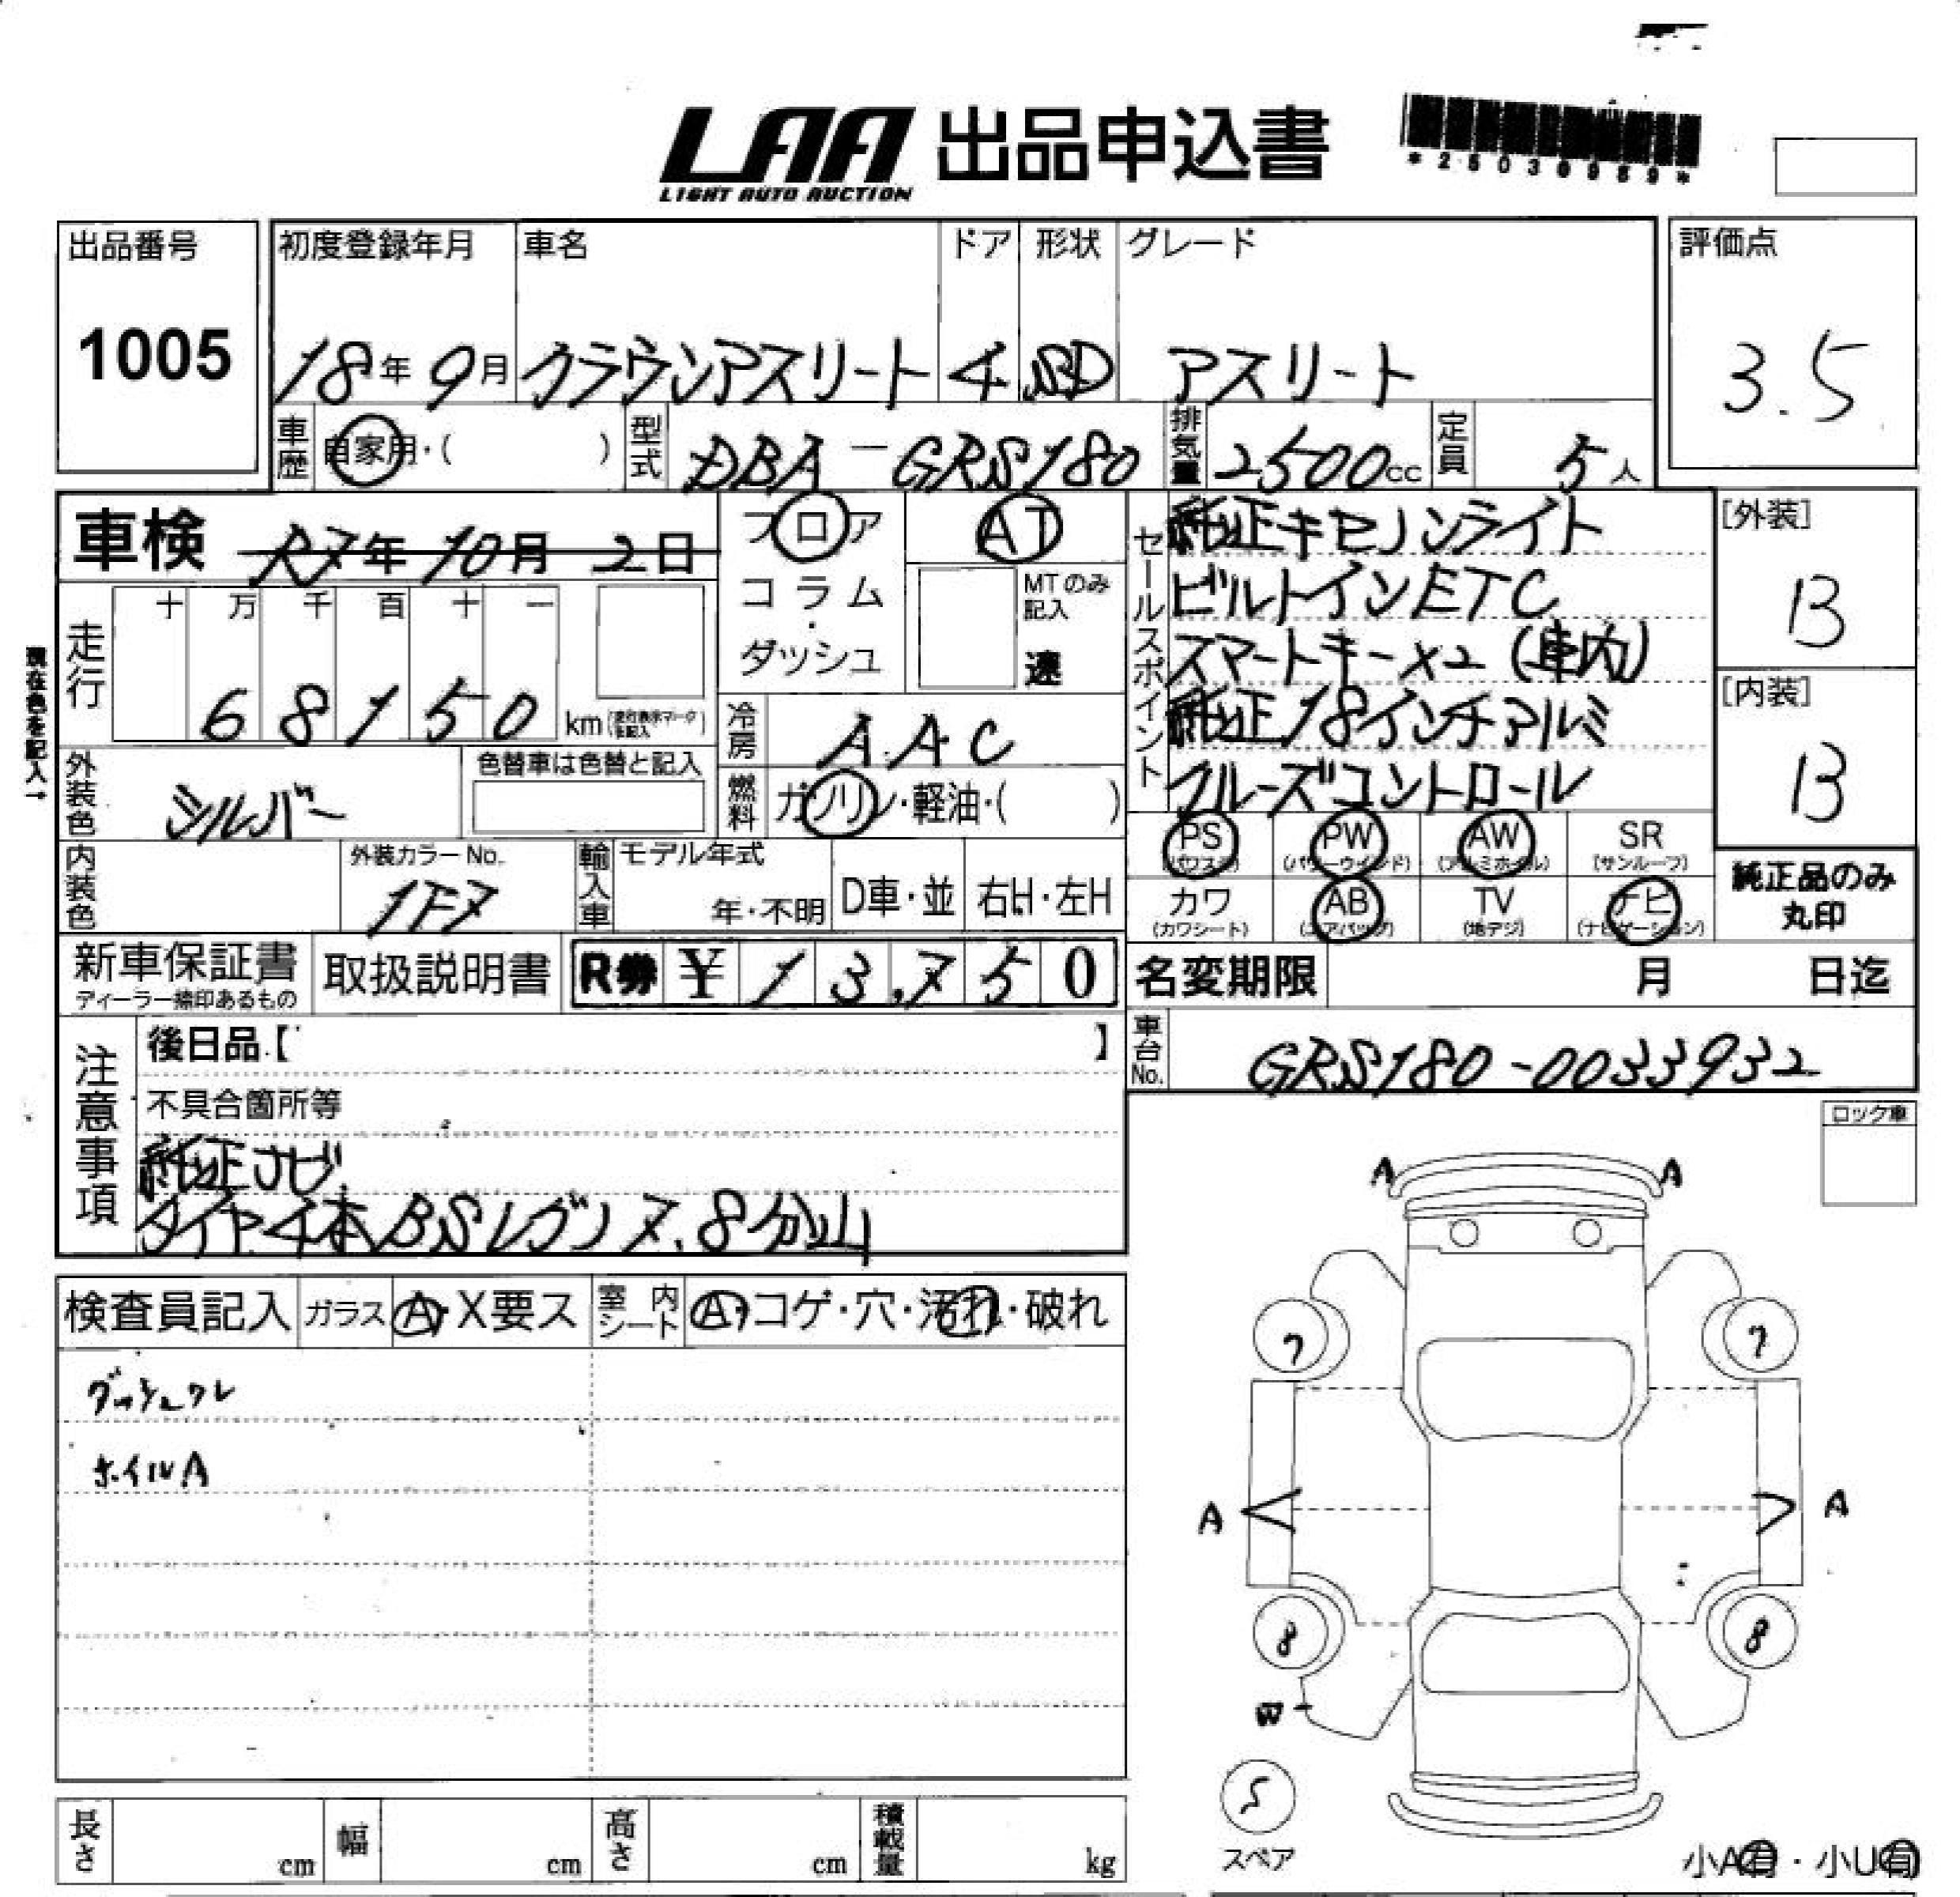 LAA 出品申込書
LIGHT AUTO AUCTION
出品番号
1005
初度登録年月
18年9月
車名
クラウンアスリート
ドア
4
形状
SD
グレード
アスリート
評価点
3.5
車歴
自家用・( )
型式
DBA-GRS180
排気量
2500cc
定員
5人
車検 R7年10月2日
フロア
コラム
・
ダッシュ
AT
MTのみ記入
速
セールスポイント
純正キセノンライト
ビルトインETC
スマートキーx2(車内)
純正18インチアルミ
クルーズコントロール
[外装]
B
[内装]
B
現在色を記入→
走行
十万千百十一
68150km
冷房
AAC
外装色
シルバー
色替車は色替と記入
燃料
ガソリン・軽油・( )
PS
(パワステ)
PW
(パワーウインド)
AW
(アルミホイル)
SR
(サンルーフ)
カワ
(カワシート)
AB
(エアバッグ)
TV
(地デジ)
ナビ
(ナビゲーション)
純正品のみ
丸印
内装色
外装カラーNo.
1F7
輸入車
モデル年式
年・不明
D車・並
右H・左H
新車保証書
ディーラー捺印あるもの
取扱説明書
R券 ¥13,750
名変期限 月 日迄
車台No.
GRS180-0033932
注意事項
後日品【 】
不具合箇所等
純正ナビ
タイヤ4本BSレグノ7.8分山
ロック車
検査員記入
ガラス
A・X要ス
室内シート
A・コゲ・穴・汚れ・破れ
ダッシュワレ
ホイルA
A
A
7
7
A
A
8
8
W
5
スペア
小A有・小U有
長さ
cm
幅
cm
高さ
cm
積載量
kg